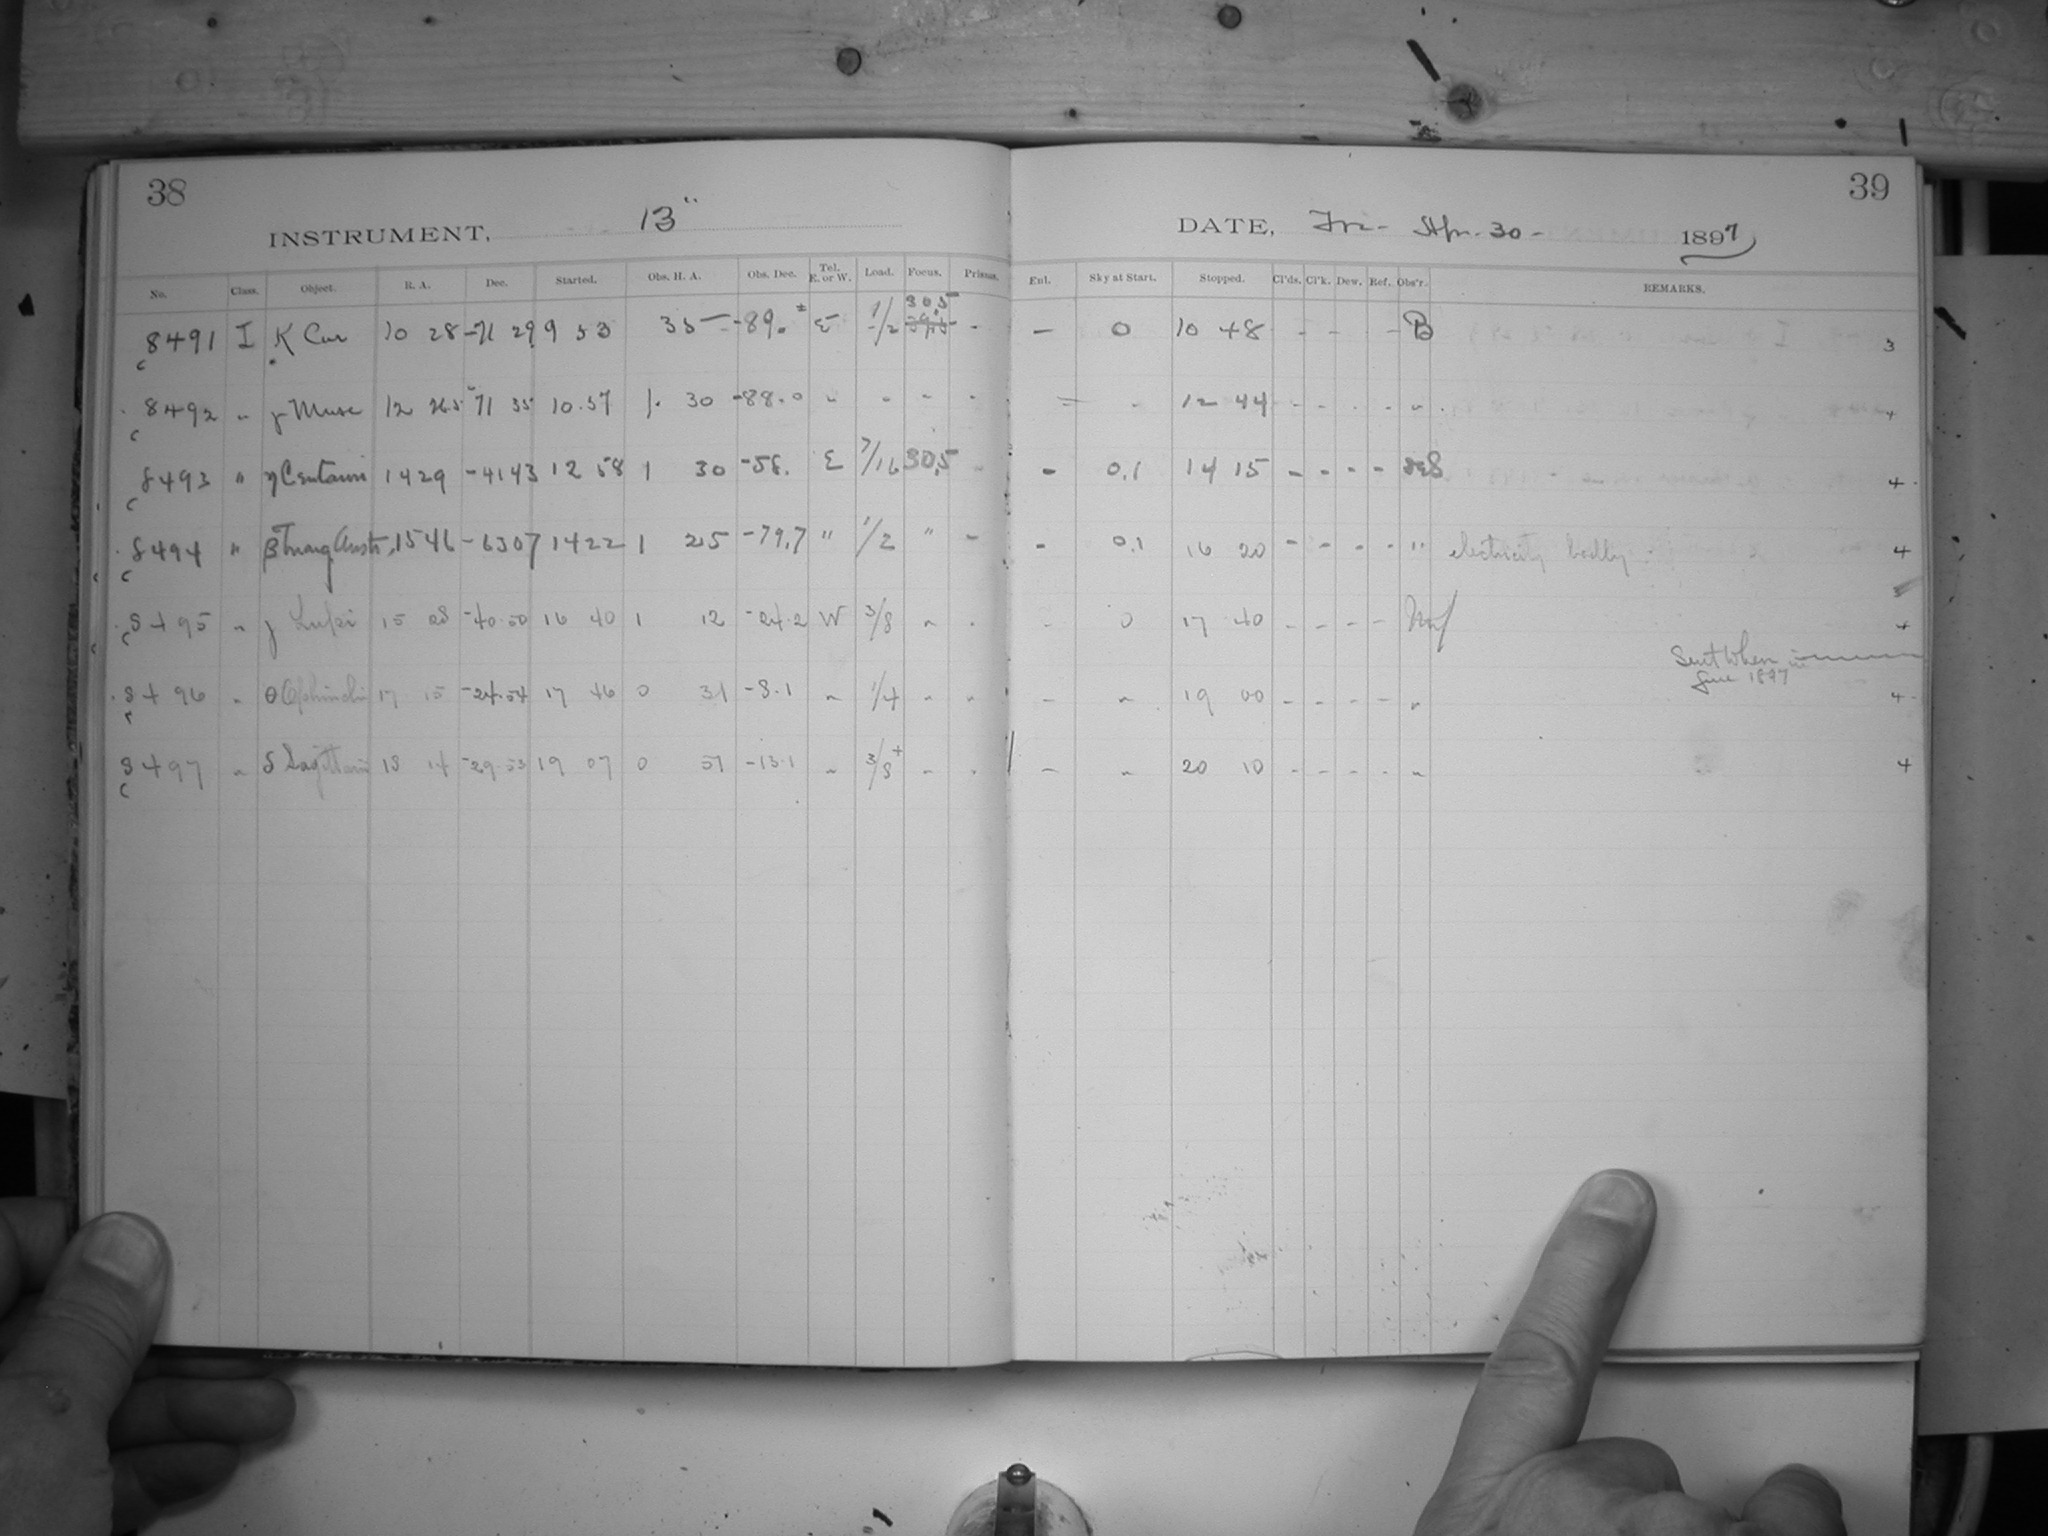 38
INSTRUMENT, 13"
No. Class. Object. R. A. Dec. Started. Obs. H. A. Obs. Dec. Tel. E. or W. Load. Focus. Prisms.
8491 I K Car 10 28 -71 29 9 53 35 -89.± E 1/2 30.5 -
8492 " γ Musc 12 26.5 -71 35 10.57 1. 30 -88.0 " " " "
8493 " η Centauri 14 29 -41 43 12 58 1 30 -58. E 7/16 30.5 -
8494 " β Triang Austr. 15 46 -63 07 14 22 1 25 -79.7 " 1/2 " -
8495 " γ Lupi 15 28 -40.50 16 40 1 12 -24.2 W 3/8 " -
8496 " θ Ophiuchi 17 15 -24.54 17 46 0 31 -8.1 " 1/4 " "
8497 " δ Sagittarii 18 14 -29.53 19 07 0 51 -13.1 " 3/8+ " -
39
DATE, Fri- Apr. 30- 1897
Ent. Sky at Start. Stopped. Cl'ds. Cl'k. Dew. Ref. Obs'r. REMARKS.
- 0 10 48 - - - B 3
- " 12 44 - - - - " 4
- 0.1 14 15 - - - - 4
- 0.1 16 20 - - - - " electricity badly 4
- 0 17 40 - - - - 4
Sent when in
June 1897
- " 19 00 - - - - " 4
- " 20 10 - - - - " 4